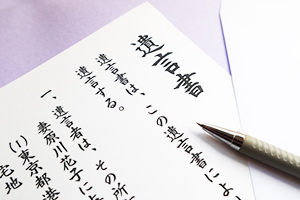 遺言書
遺言書は、この遺言書によ
遺言する。
一、遺言者は、その所
妻芳川花子によ
(1)東京都港
宅地